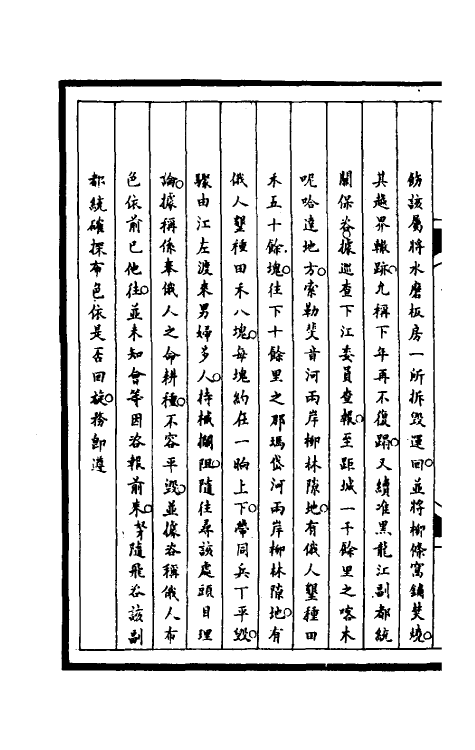 飭該屬將水磨板房一所拆毀運回○並將柳條窩鋪焚燒○
其越界轍跡○九稱下年再不復蹋○又續准黑龍江副都統
關保咨○據巡查下江委員查報○至距城一千餘里之喀木
呢哈達地方○索勒斐音河兩岸柳林隙地○有俄人墾種田
禾五十餘塊○往下十餘里之那瑪岱河兩岸柳林隙地○有
俄人墾種田禾八塊○每塊約在一晌上下○帶同兵丁平毀○
驟由江左渡來男婦多人○持械攔阻○隨往尋該處頭目理
論○據稱係奉俄人之命耕種○不容平毀○並據咨稱俄人布
色依前已他往○並未知會等因咨報前來○等隨飛咨該副
都統確探布色依是否回旋○務即遵